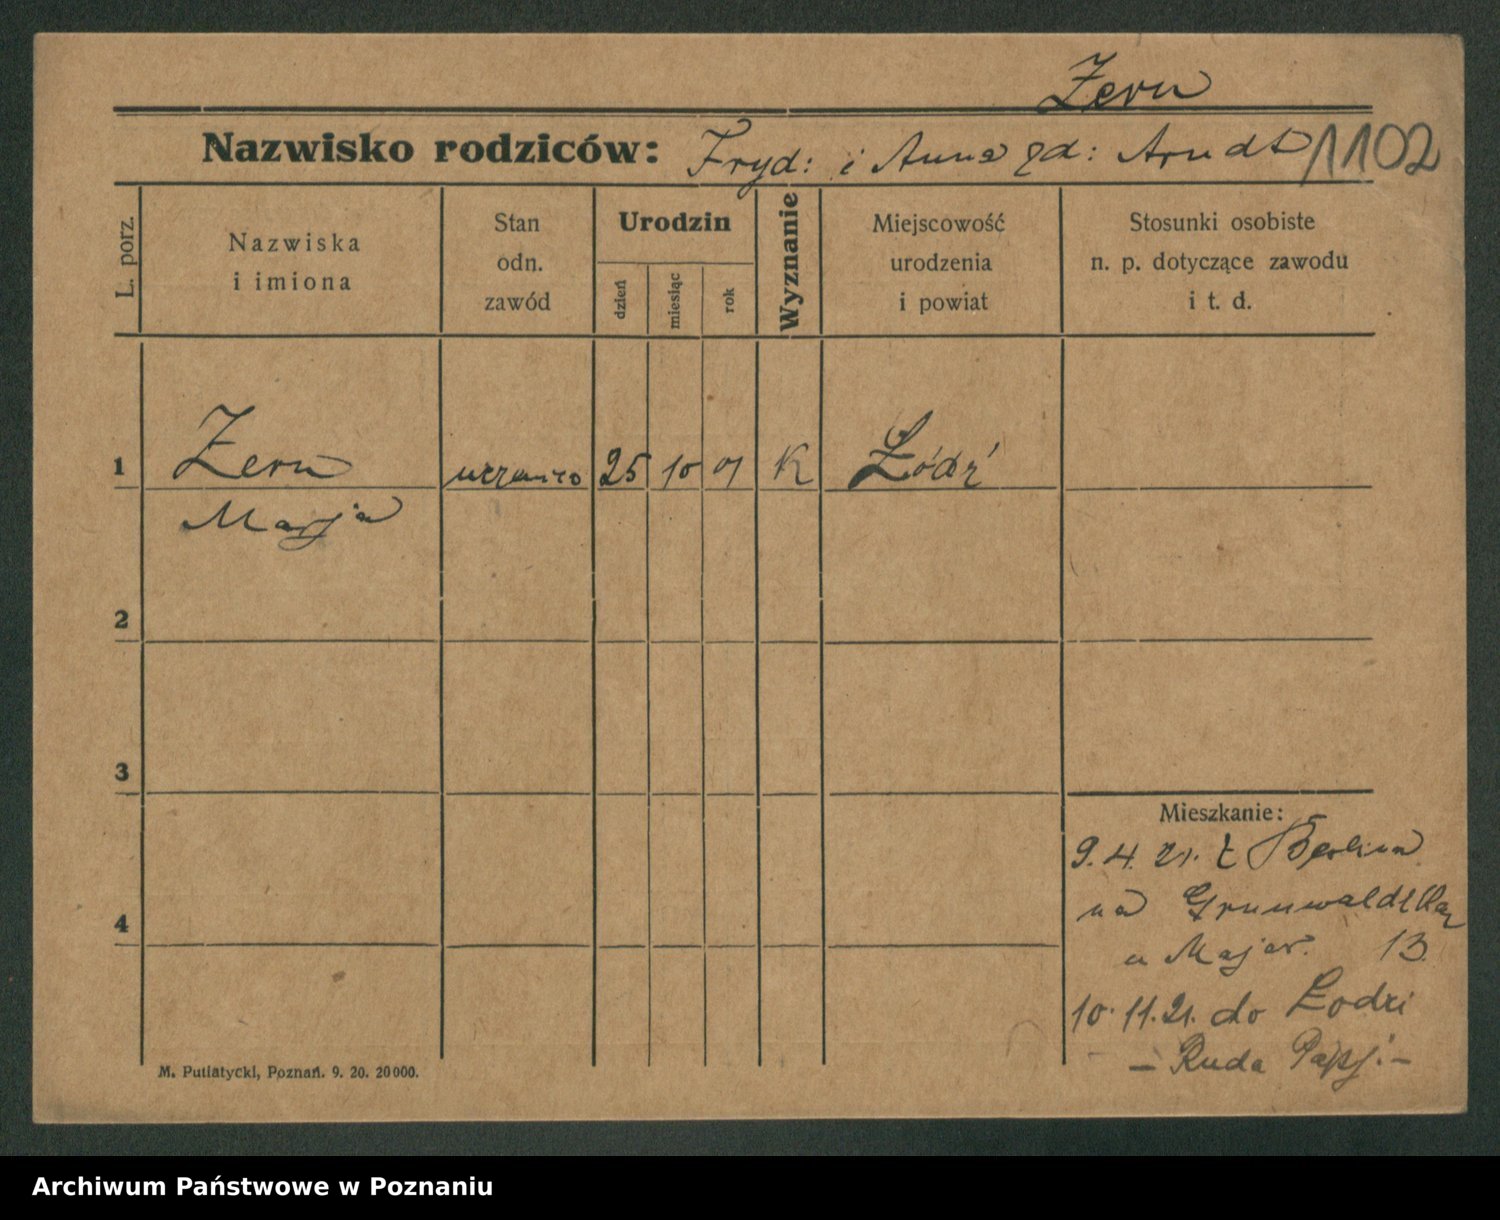 Zeru
Nazwisko rodziców: Fryd: i Anna zd: Arndt 1102
L. porz.
Nazwiska
i imiona
Stan
odn.
zawód
Urodzin
dzień
miesiąc
rok
Wyznanie
Miejscowość
urodzenia
i powiat
Stosunki osobiste
n. p. dotyczące zawodu
i t. d.
1 Zeru 25 10 01 K Łódź
Marja
2
3
4
Mieszkanie:
9.4.21. z Berlina
na Grunwaldzka
u Majer. 13
10.11.21. do Łodzi
— Ruda Pabj. —
M. Putiatycki, Poznań. 9. 20. 20000.
Archiwum Państwowe w Poznaniu